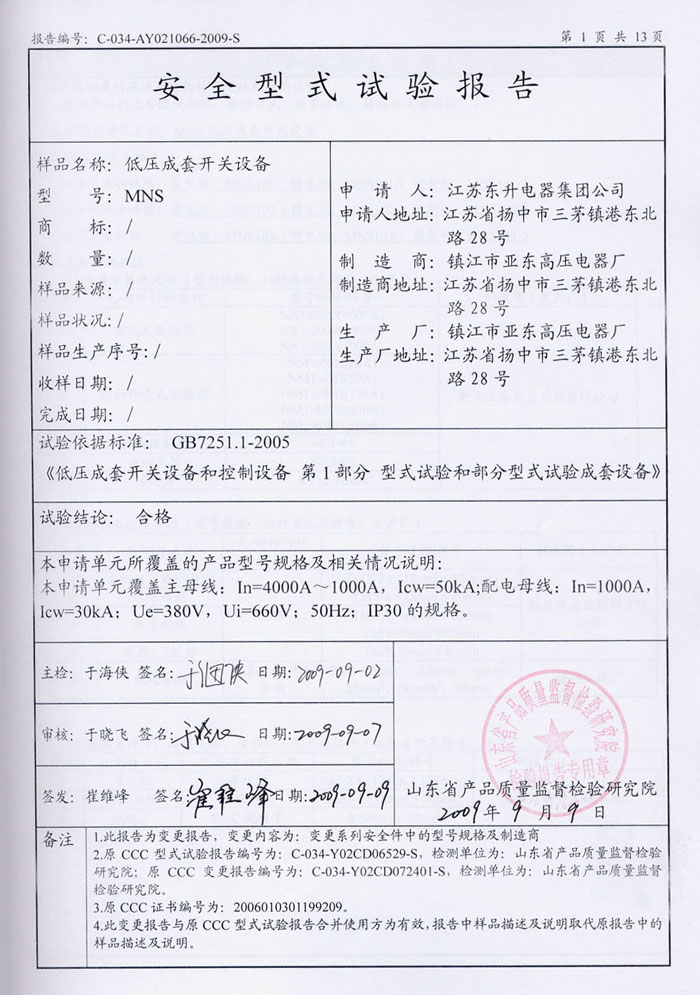 报告编号：C-034-AY021066-2009-S
第 1 页 共 13 页
安全型式试验报告
样品名称：低压成套开关设备
型 号：MNS
商 标：/
数 量：/
样品来源：/
样品状况：/
样品生产序号：/
收样日期：/
完成日期：/
申 请 人：江苏东升电器集团公司
申请人地址：江苏省扬中市三茅镇港东北
路 28 号
制 造 商：镇江市亚东高压电器厂
制造商地址：江苏省扬中市三茅镇港东北
路 28 号
生 产 厂：镇江市亚东高压电器厂
生产厂地址：江苏省扬中市三茅镇港东北
路 28 号
试验依据标准： GB7251.1-2005
《低压成套开关设备和控制设备 第 1 部分 型式试验和部分型式试验成套设备》
试验结论： 合格
本申请单元所覆盖的产品型号规格及相关情况说明：
本申请单元覆盖主母线：In=4000A～1000A，Icw=50kA;配电母线：In=1000A，
Icw=30kA；Ue=380V，Ui=660V；50Hz；IP30 的规格。
主检：于海侠 签名： 日期：2009-09-02
审核：于晓飞 签名： 日期：2009-09-07
签发：崔维峰 签名：崔维峰 日期：2009-09-09
山东省产品质量监督检验研究院
检验报告专用章
山东省产品质量监督检验研究院
2009 年 9 月 9 日
备注
1.此报告为变更报告，变更内容为：变更系列安全件中的型号规格及制造商
2.原 CCC 型式试验报告编号为：C-034-Y02CD06529-S，检测单位为：山东省产品质量监督检验
研究院；原 CCC 变更报告编号为：C-034-Y02CD072401-S，检测单位为：山东省产品质量监督
检验研究院。
3.原 CCC 证书编号为：2006010301199209。
4.此变更报告与原 CCC 型式试验报告合并使用方为有效，报告中样品描述及说明取代原报告中的
样品描述及说明。